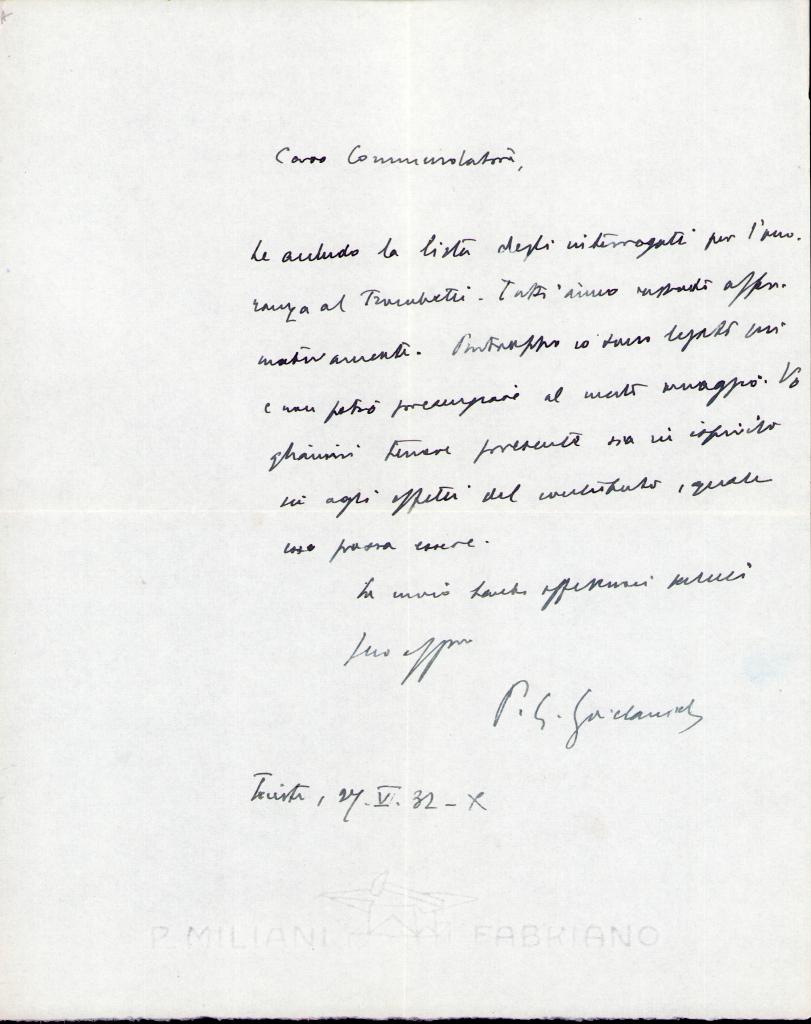 Caro Commendatore,
Le accludo la lista degli interrogati per l'ono-
ranza al Trombetti. Tutti ànno risposto affer-
mativamente. Purtroppo io sono legato qui
e non potrò partecipare al
gliatemi tenere presente sia in ispirito
sia agli effetti del contributo, quale
esso possa essere.
Le invio tanti affettuosi saluti
Suo affmo
P. G. Goidanich
Trieste, 27.VI.32-X
P. MILIANI FABRIANO